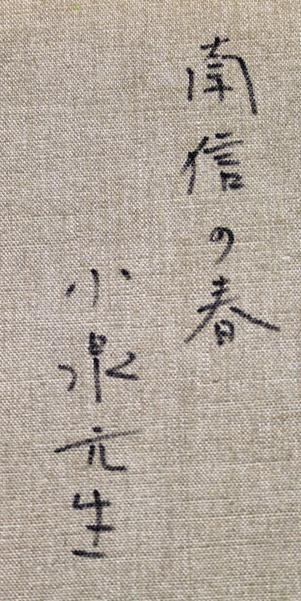 南信の春
小泉元生